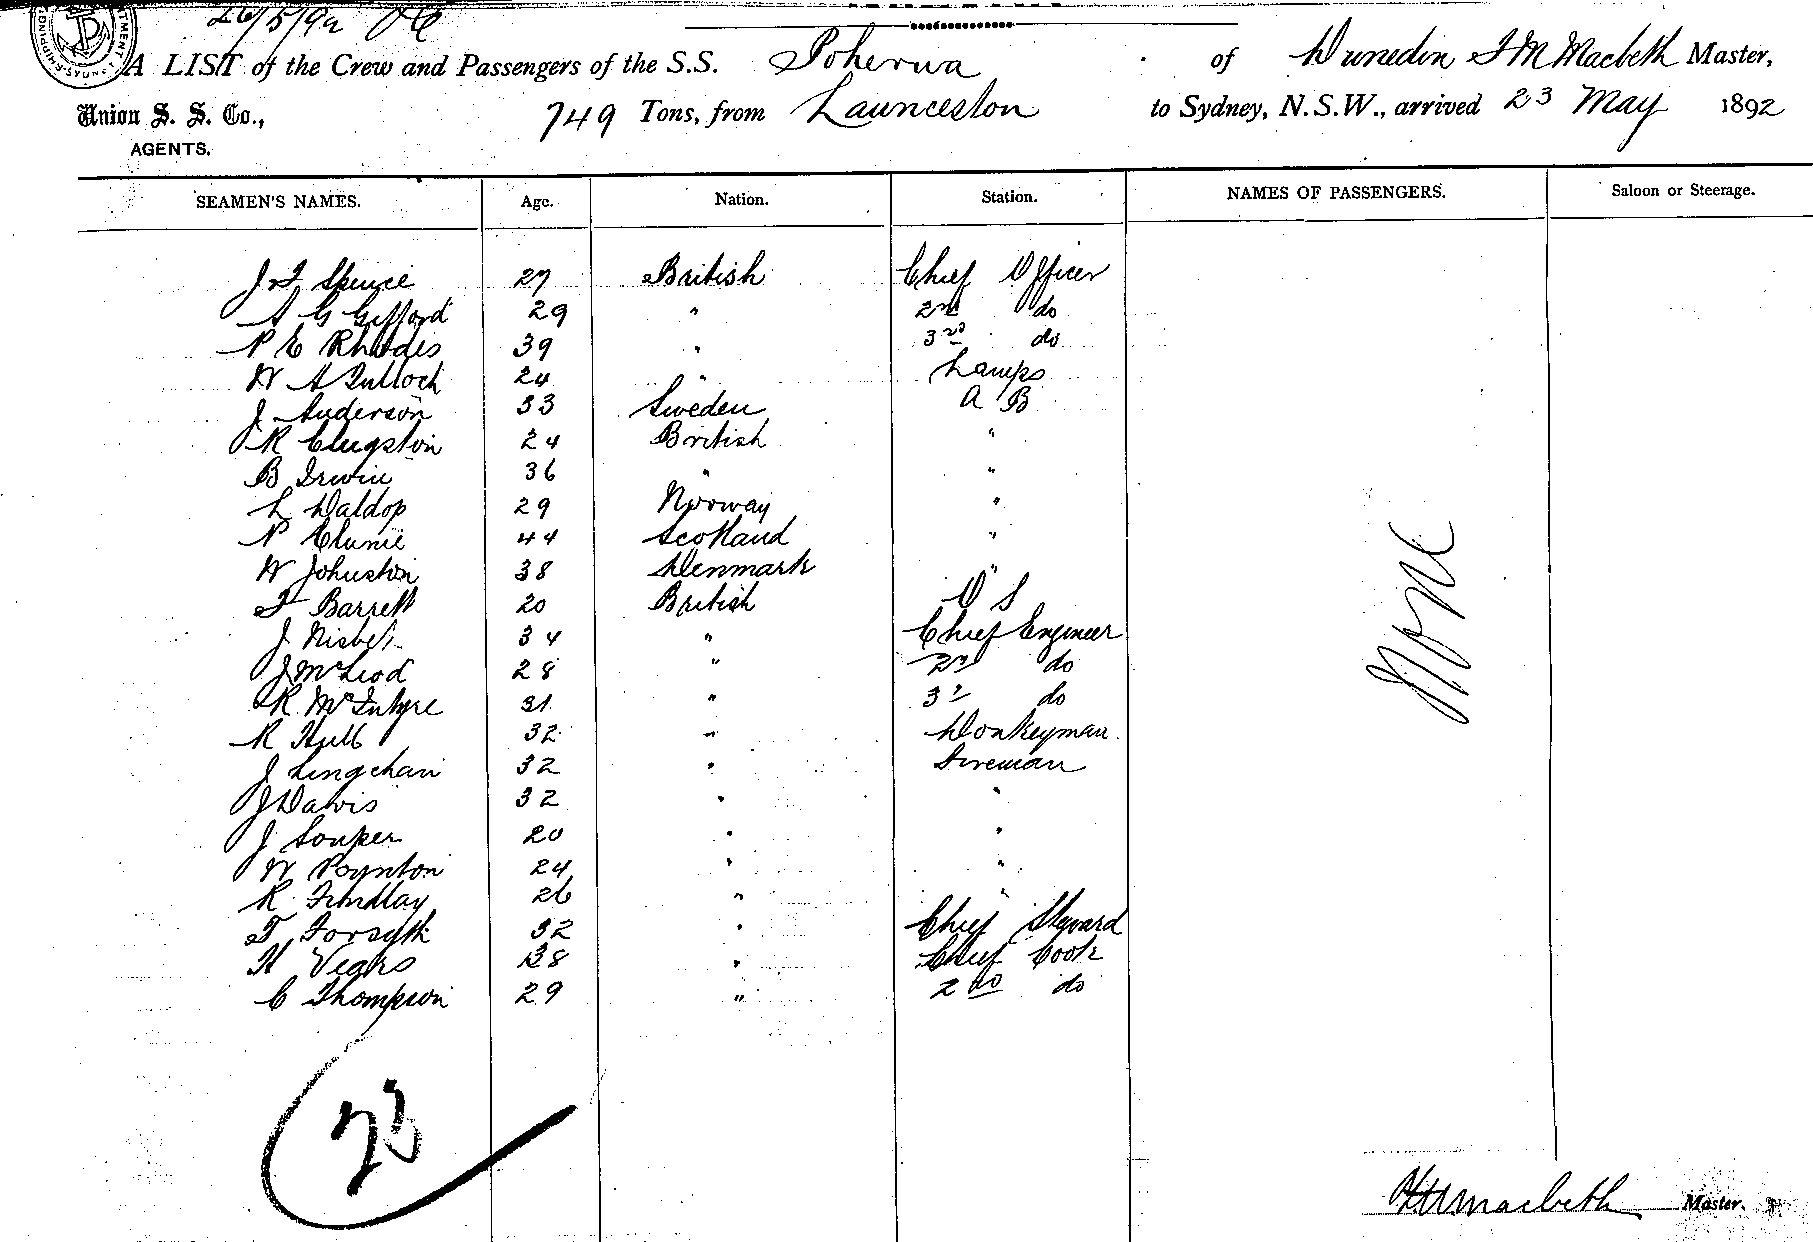 26/5/92
A LIST of the Crew and Passengers of the S.S. Poherua of Dunedin J M Macbeth Master,
Union S. S. Co., 749 Tons, from Launceston to Sydney, N.S.W., arrived 23 May 1892
AGENTS.
SEAMEN'S NAMES. Age. Nation. Station. NAMES OF PASSENGERS. Saloon or Steerage.
J F Spence 27 British Chief Officer
A G Gifford 29 " 2nd do
P E Rhodes 39 " 3rd do
W A Tulloch 24 " Lamps
J Anderson 33 Sweden A B
R Clugston 24 British "
B Irwin 36 " "
L Waldop 29 Norway "
P Clunie 44 Scotland "
W Johnston 38 Denmark "
F Barrett 20 British O S
J Nisbet 34 " Chief Engineer
J McLeod 28 " 2nd do
R McIntyre 31 " 3rd do
R Hull 32 " Donkeyman
J Lingchan 32 " Fireman
J Davis 32 " "
J Souper 20 " "
W Poynton 24 " "
R Findlay 26 " "
T Forsyth 32 " Chief Steward
H Vears 38 " Chief Cook
C Thompson 29 " 2nd do
None
23
Macbeth Master.